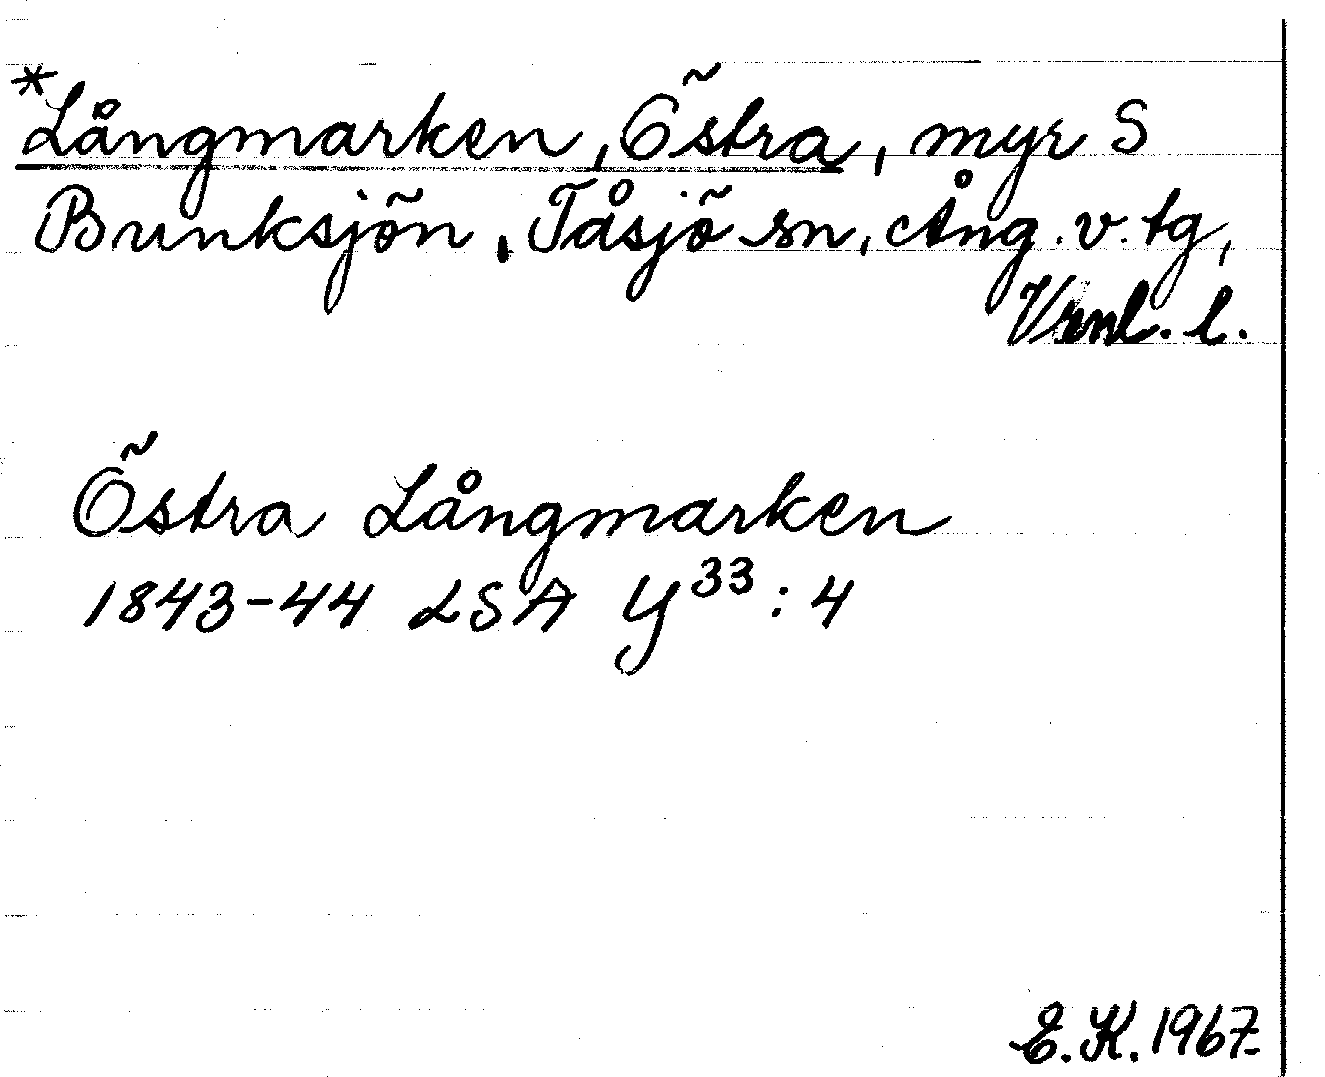 *Långmarken, Östra, myr S
Bunksjön, Tåsjö sn, Ång. v. tg,
Vrnl. l.
Östra Långmarken
1843-44 LSA Y³³: 4
E. K. 1967